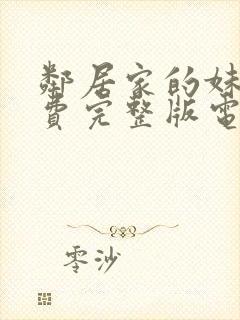 鄰居家的妹
費完整版電
零沙